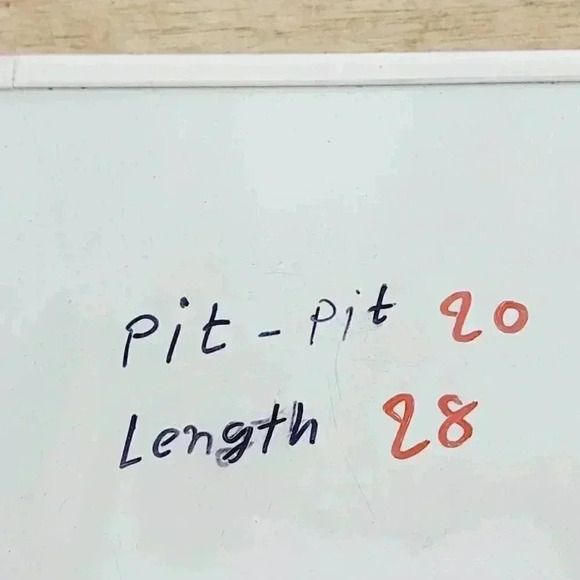 Pit - Pit 20
Length 28